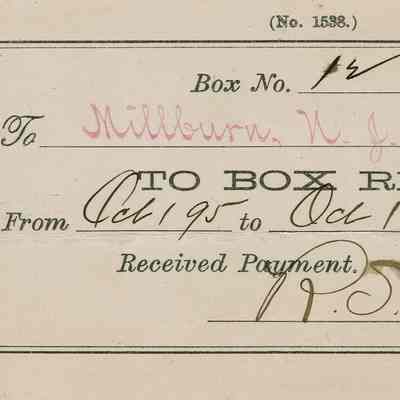 (No. 1538.)
Box No. 12
To Millburn, N. J.
TO BOX R
From Oct 1 95 to Oct 1
Received Payment.
R. S.